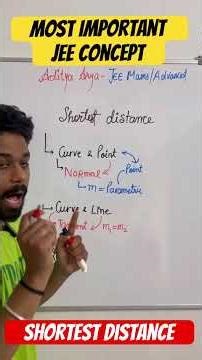 MOST IMPORTANT
JEE CONCEPT
Aditya Arya - JEE Mains/Advanced
Shortest distance
Curve & Point
Normal
Point
m = Parametric
Curve & Line
Tangent
m₁=m₂
SHORTEST DISTANCE